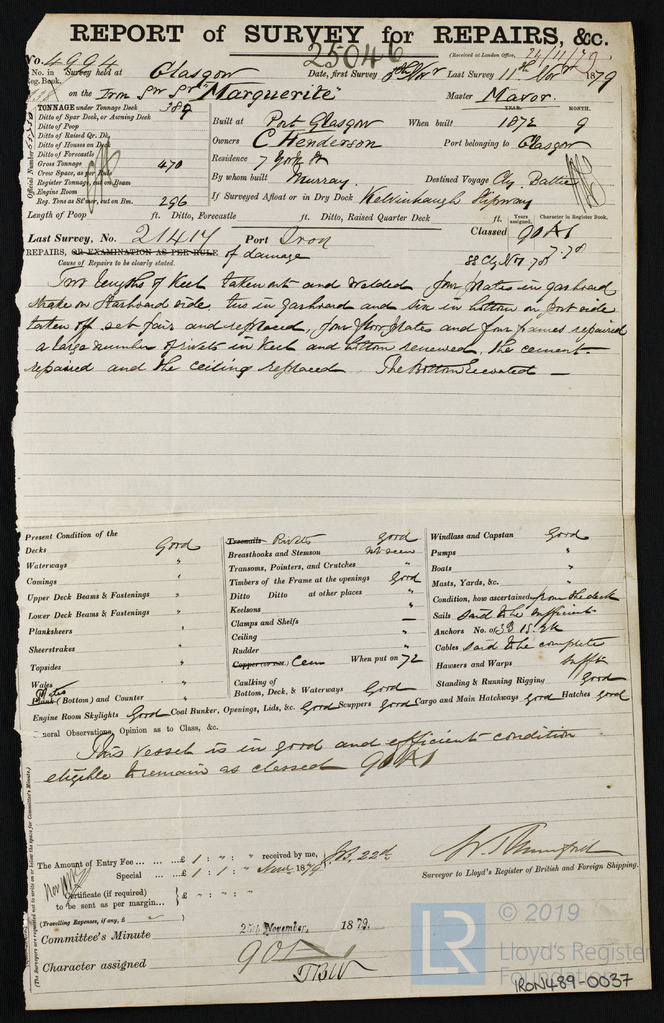 REPORT of SURVEY for REPAIRS, &c.
25046
(Received at London Office, 24/11/79
No. 4994
No. in Reg. Book. Survey held at Glasgow Date, first Survey 8th Novr Last Survey 11th Novr 1879
on the Iron Sw Sr "Marguerite" Master Mavor.
TONNAGE under Tonnage Deck 389
Ditto of Spar Deck, or Awning Deck
Ditto of Poop
Ditto of Raised Qr. Dk.
Ditto of Houses on Deck
Ditto of Forecastle
Gross Tonnage 470
Crew Space, as per Rule
Register Tonnage, cut on Beam
Engine Room
Reg. Tons as St'mer, cut on Bm. 296
Official Number
YEAR. MONTH.
Built at Port Glasgow When built 1872 9
Owners C Henderson Port belonging to Glasgow
Residence 7 York St
By whom built Murray. Destined Voyage Clg Baltic
If Surveyed Afloat or in Dry Dock Kelvinhaugh Slipway
Length of Poop ft. Ditto, Forecastle ft. Ditto, Raised Quarter Deck ft.
Years assigned. Character in Register Book.
Last Survey, No. 21414 Port Iron Classed 90A1
7.78
REPAIRS, OR EXAMINATION AS PER RULE of damage
Cause of Repairs to be clearly stated.
SS Clg No1 78
Two lengths of Keel taken out and welded four plates in garboard
strake on starboard side two in garboard and six in bottom on port side
taken off set fair and replaced, four floor plates and four frames repaired
a large number of rivets in Keel and bottom renewed, the cement
repaired and the ceiling replaced The Bottom Recoated —
Present Condition of the
Decks Good
Waterways "
Comings "
Upper Deck Beams & Fastenings "
Lower Deck Beams & Fastenings "
Planksheers "
Sheerstrakes "
Topsides "
Wales "
Plank Plates (Bottom) and Counter "
Treenails Rivets good
Breasthooks and Stemson not seen
Transoms, Pointers, and Crutches "
Timbers of the Frame at the openings Good
Ditto Ditto at other places "
Keelsons "
Clamps and Shelfs —
Ceiling "
Rudder "
Copper (or &c.) Cem When put on 72
Caulking of Bottom, Deck, & Waterways Good
Windlass and Capstan Good
Pumps "
Boats "
Masts, Yards, &c. "
Condition, how ascertained from the deck
Sails said to be sufficient
Anchors No. of 3B 1S. 2K
Cables said to be complete
Hawsers and Warps sufft
Standing & Running Rigging Good
Engine Room Skylights Good Coal Bunker, Openings, Lids, &c. Good Scuppers good Cargo and Main Hatchways good Hatches good
General Observations, Opinion as to Class, &c.
This vessel is in good and efficient condition
eligible to remain as classed 90A1
The Amount of Entry Fee ... ... ... £ 1 : " : " received by me,
Special ... ... £ 1 : 1 : " Novr 1879
Certificate (if required) to be sent as per margin... £ " : " : "
(Travelling Expenses, if any, £
Surveyor to Lloyd's Register of British and Foreign Shipping.
Committee's Minute 25th November, 1879.
Character assigned 90A1
TBW
(The Surveyors are requested not to write on or below the space for Committee's Minute.)
LR
© 2019
Lloyd's Register
Foundation
IRON489-0037